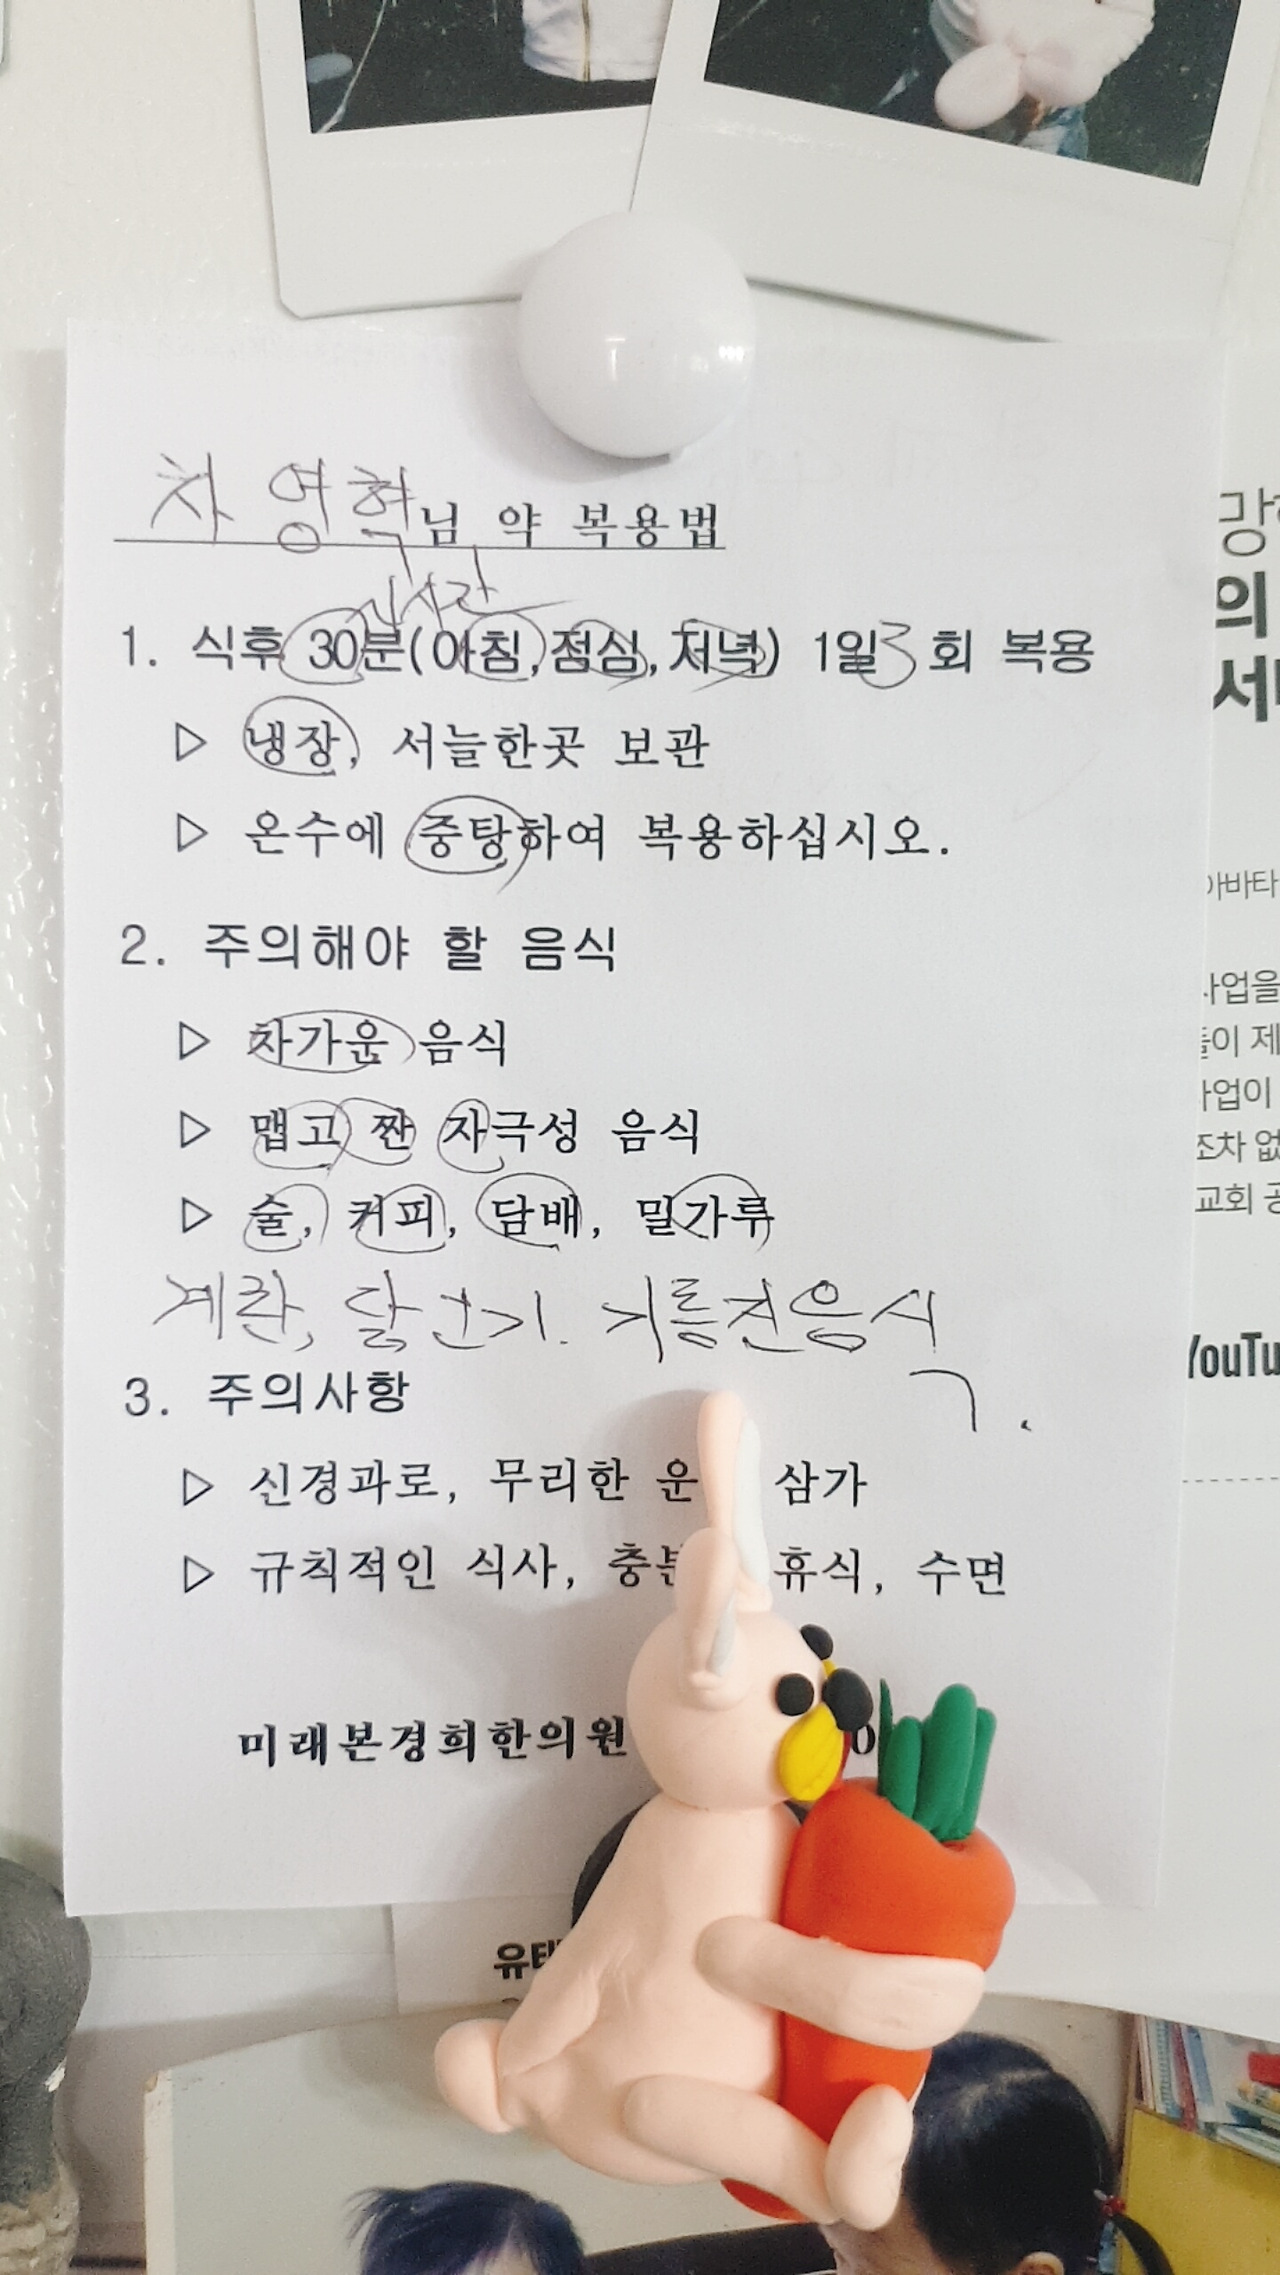 차영혁님 약 복용법
1시간
1. 식후 30분(아침,점심,저녁) 1일 3 회 복용
▷ 냉장, 서늘한곳 보관
▷ 온수에 중탕하여 복용하십시오.
2. 주의해야 할 음식
▷ 차가운 음식
▷ 맵고 짠 자극성 음식
▷ 술, 커피, 담배, 밀가루
계란, 닭고기. 기름진음식.
3. 주의사항
▷ 신경과로, 무리한 운 삼가
▷ 규칙적인 식사, 충분 휴식, 수면
미래본경희한의원
의
아바타
사업을
들이 제
사업이
조차 없
교회 공
YouTu